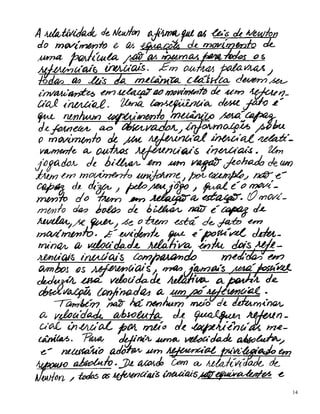 A relatividade de Newton afirma que as leis de Newton
do movimento e as equações de movimento de
uma partícula são as mesmas para todos os
referenciais inerciais. Em outras palavras,
todas as leis da mecânica clássica devem ser
invariantes em relação ao movimento de um referen-
cial inercial. Uma consequência desse fato é
que nenhum experimento mecânico será capaz
de fornecer ao observador, informações sobre
o movimento de seu referencial inercial relati-
vamente a outros referenciais inerciais. Um
jogador de bilhar em um vagão fechado de um
trem em movimento uniforme, por exemplo, não é
capaz de dizer, pelo seu jogo, qual é o movi-
mento do trem em relação a estação. O movi-
mento das bolas de bilhar não é capaz de
revelar, se quer, se o trem está de fato em
movimento. É evidente que é possível deter-
minar a velocidade relativa entre dois refe-
renciais inerciais comparando medidas em
ambos os referenciais, mas jamais será possível
deduzir essa velocidade relativa a partir de
observações confinadas a um só referencial.
Também não há nenhum meio de determinar
a velocidade absoluta de qualquer referen-
cial inercial por meio de experiências me-
cânicas. Para definir uma velocidade absoluta,
é necessário adotar um referencial privilegiado em
repouso absoluto. De acordo com a relatividade de
Newton, todos os referenciais inerciais são equivalentes e
14